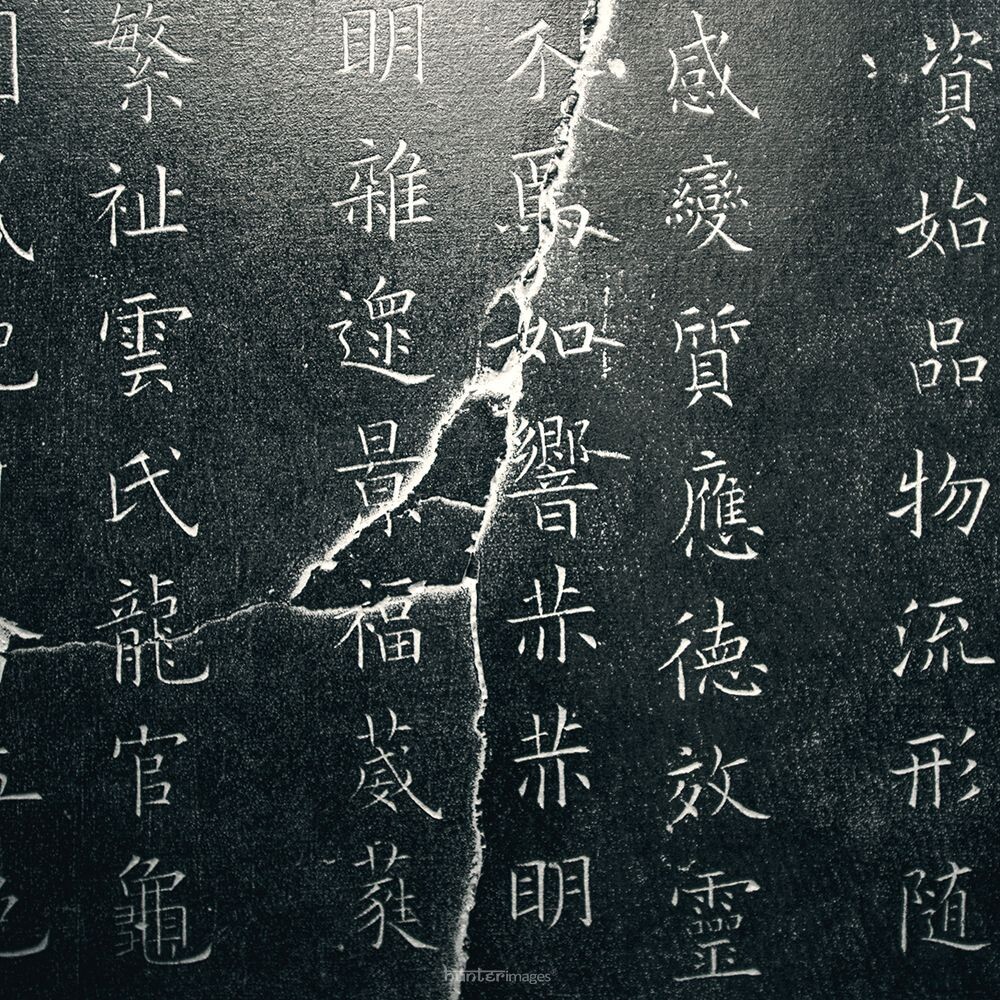 資始品物流形随
感變質應德效靈
介焉如響赫赫明
明雜遝景福葳蕤
繁祉雲氏龍官龜
hunterimages